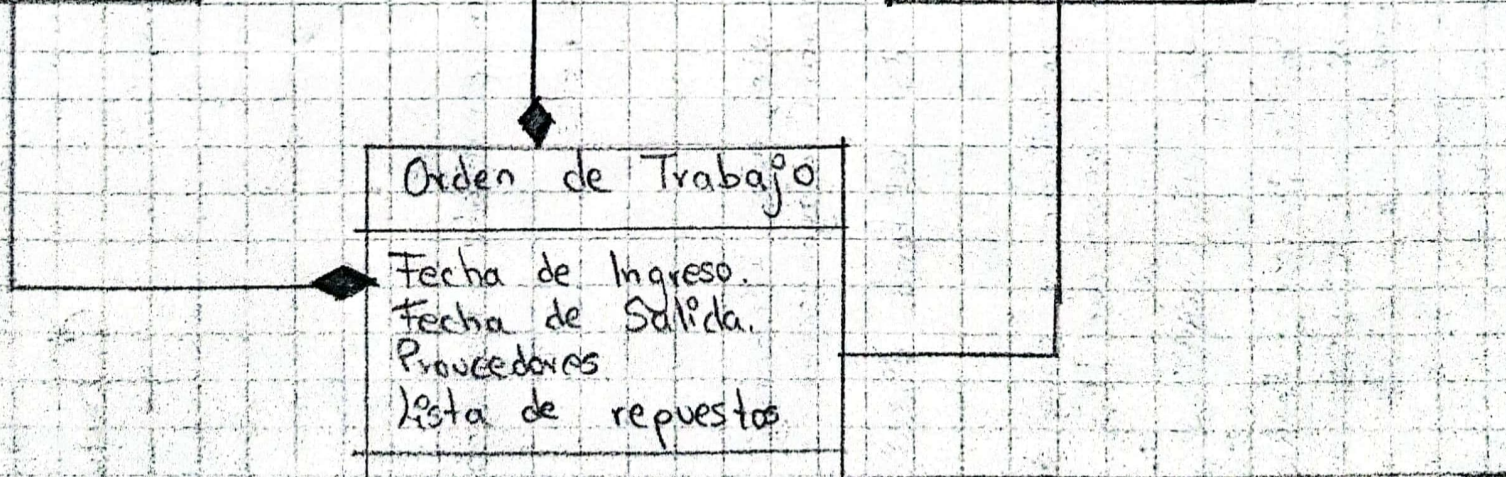 Orden de Trabajo
Fecha de Ingreso.
Fecha de Salida.
Proveedores
Lista de repuestos